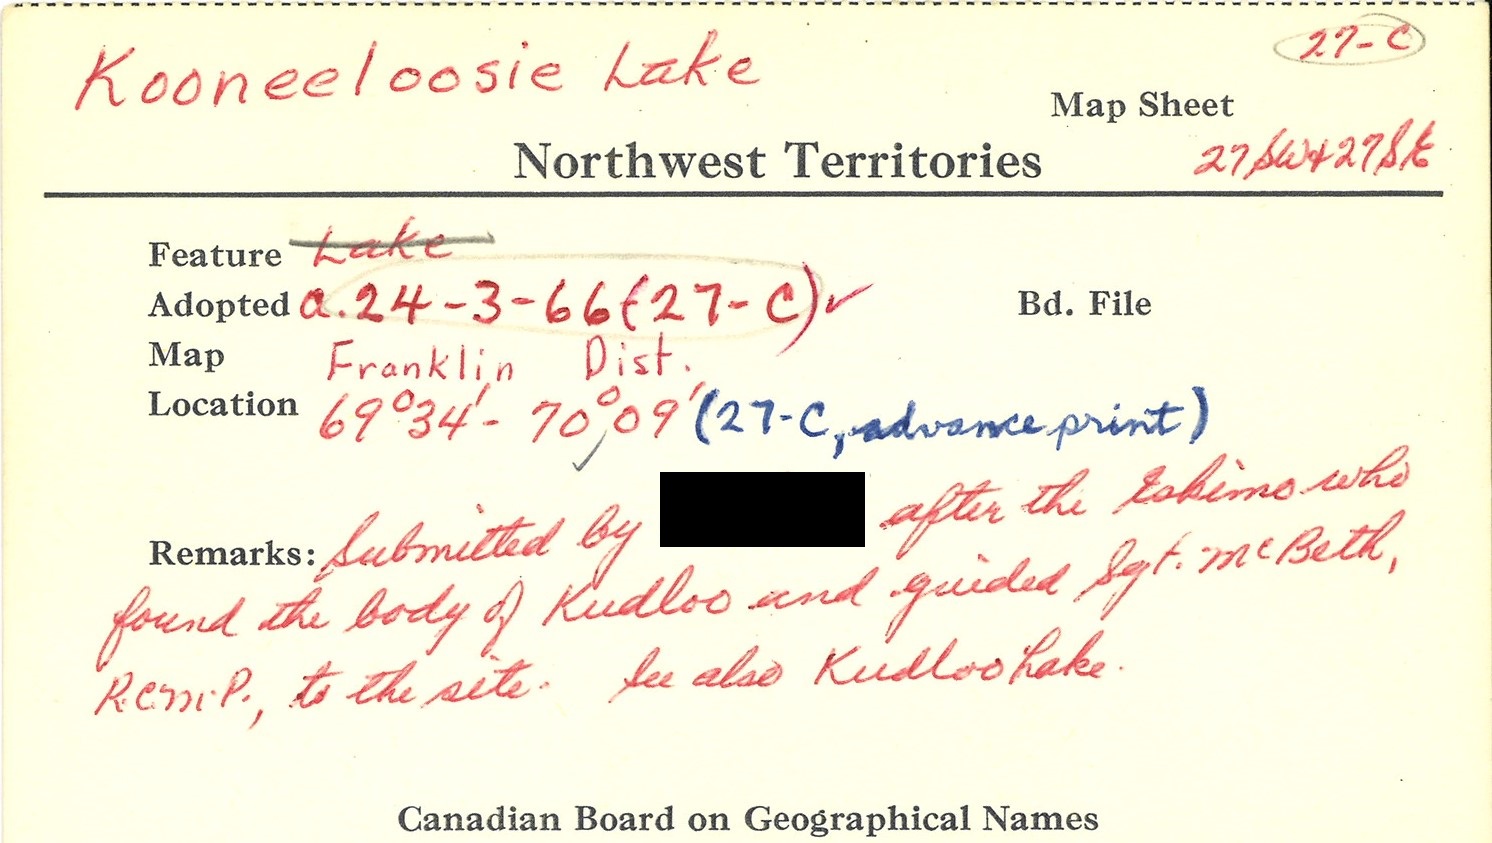 27-C
Kooneeloosie Lake
Map Sheet
Northwest Territories
27SW+27SE
Feature Lake
Adopted a.24-3-66(27-C)✓ Bd. File
Map Franklin Dist.
Location 69°34'- 70°09' (27-C, advance print)
✓
Remarks: Submitted by after the Eskimo who
found the body of Kudloo and guided Sgt. McBeth,
R.C.M.P., to the site. See also Kudloo Lake.
Canadian Board on Geographical Names